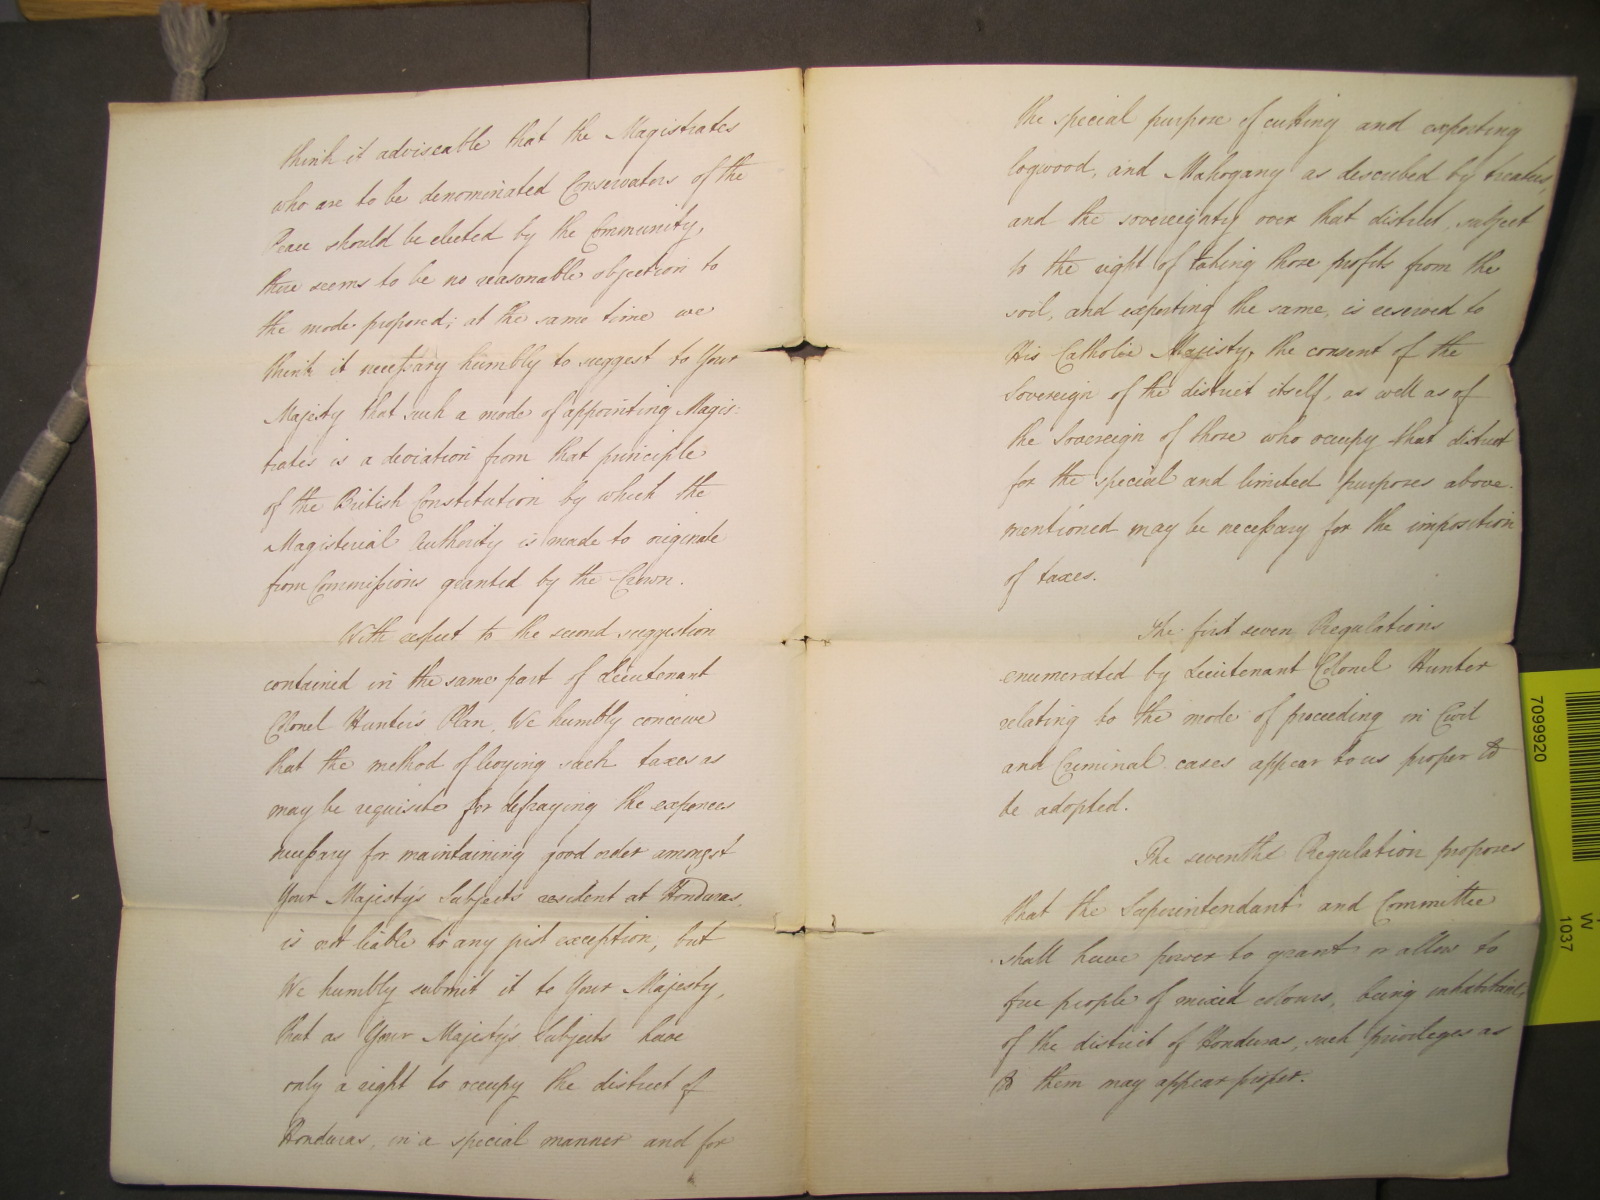 think it adviseable that the Magistrates
who are to be denominated Conservators of the
Peace should be elected by the Community,
there seems to be no reasonable objection to
the mode proposed; at the same time we
think it necessary humbly to suggest to Your
Majesty that such a mode of appointing Magis:
trates is a deviation from that principle
of the British Constitution by which the
Magisterial Authority is made to originate
from Commissions granted by the Crown.
With respect to the second suggestion
contained in the same part of Lieutenant
Colonel Hunter's Plan, We humbly conceive
that the method of levying such taxes as
may be requisite for defraying the expences
necessary for maintaining good order amongst
Your Majesty's Subjects resident at Honduras,
is not liable to any just exception, but
We humbly submit it to Your Majesty,
that as Your Majesty's Subjects have
only a right to occupy the district of
Honduras, in a special manner and for
the special purpose of cutting and exporting
logwood, and Mahogany as described by treaties,
and the sovereignty over that district, subject
to the right of taking those profits from the
soil, and exporting the same, is reserved to
His Catholic Majesty, the consent of the
Sovereign of the district itself, as well as of
the Sovereign of those who occupy that district
for the special and limited purposes above-
mentioned may be necessary for the imposition
of taxes.
The first seven Regulations
enumerated by Lieutenant Colonel Hunter
relating to the mode of proceeding in Civil
and Criminal cases appear to us proper to
be adopted.
The seventh Regulation proposes
that the Superintendant and Committee
shall have power to grant or allow to
free people of mixed colours, being inhabitants
of the district of Honduras, such privileges as
to them may appear proper.
7099920
W
1037